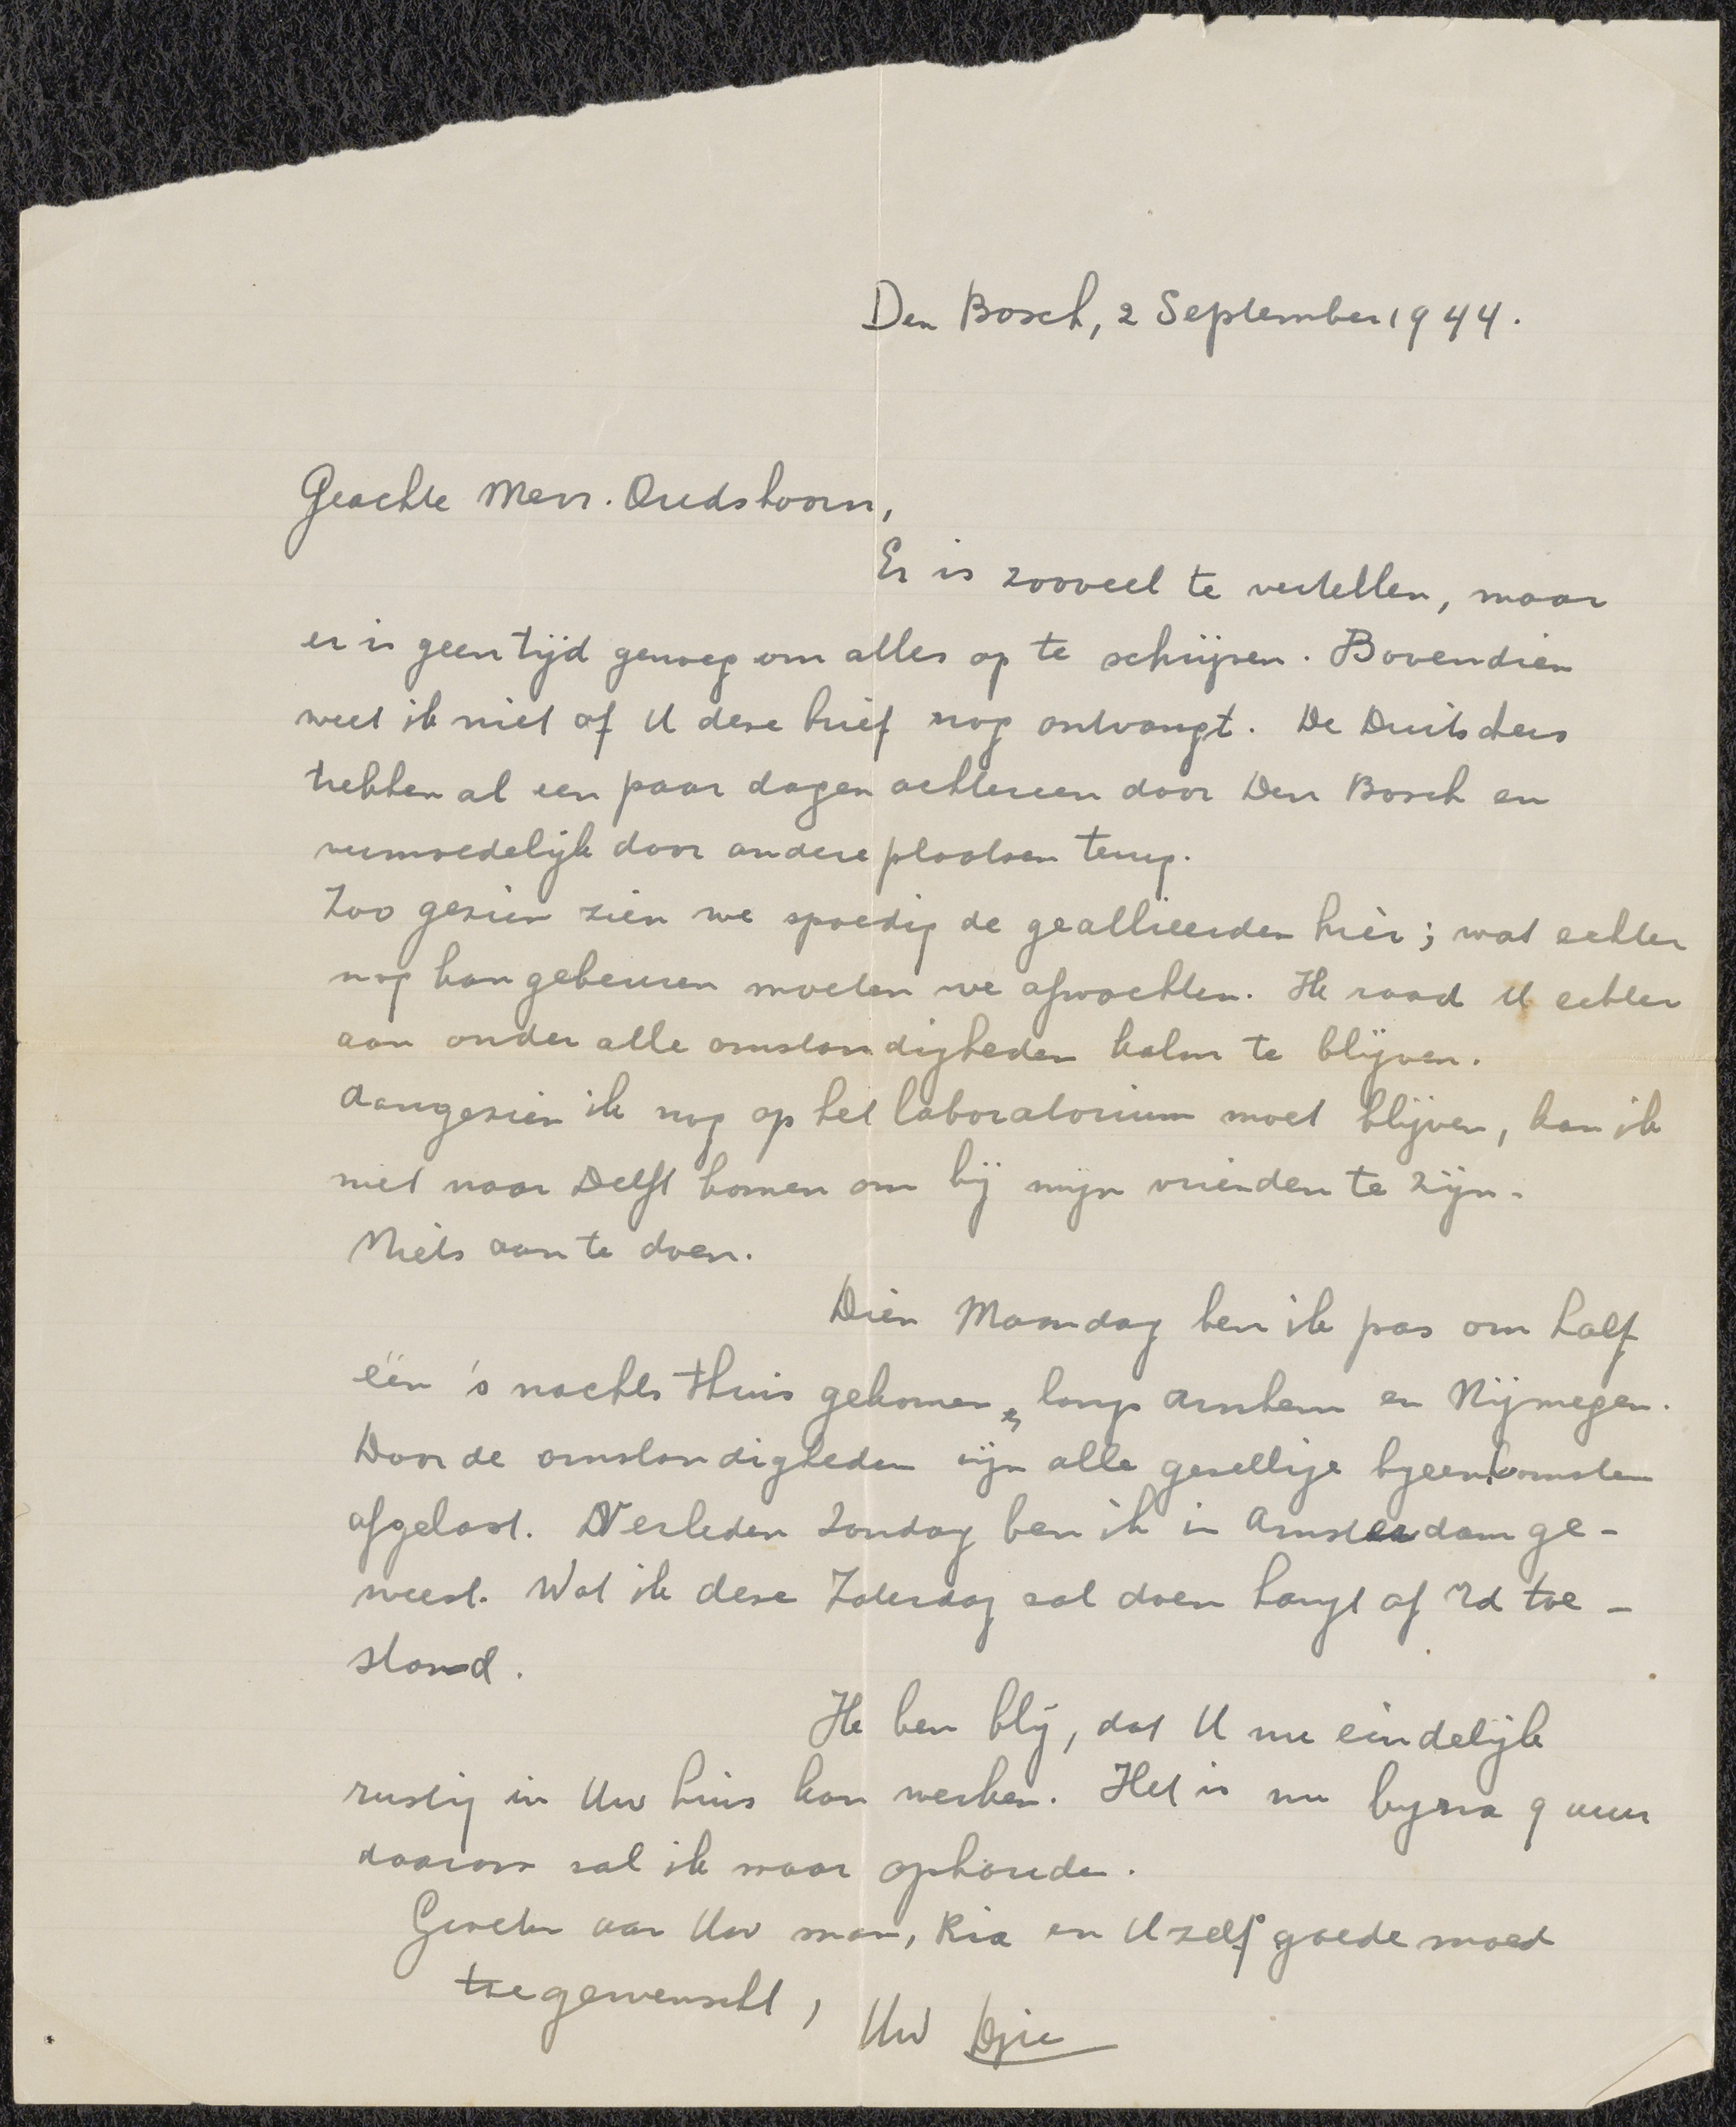 Den Bosch, 2 September 1944.
Geachte Mevr. Oudshoorn,
Er is zooveel te vertellen, maar
er is geen tijd genoeg om alles op te schrijven. Bovendien
weet ik niet of U deze brief nog ontvangt. De Duitschers
trekken al een paar dagen achtereen door Den Bosch en
vermoedelijk door andere plaatsen terug.
Zoo gezien zien we spoedig de geallieerden hier; wat echter
nog kan gebeuren moeten we afwachten. Ik raad U echter
aan onder alle omstandigheden kalm te blijven.
Aangezien ik nog op het laboratorium moet blijven, kan ik
niet naar Delft komen om bij mijn vrienden te zijn.
Niets aan te doen.
Dien Maandag ben ik pas om half
één 's nachts thuis gekomen, langs Arnhem en Nijmegen.
Door de omstandigheden zijn alle gezellige bijeenkomsten
afgelast. Verleden Zondag ben ik in Amsterdam ge-
weest. Wat ik deze Zaterdag zal doen hangt af v/d toe-
stand.
Ik ben blij, dat U nu eindelijk
rustig in Uw huis kan werken. Het is nu bijna 9 uur
daarom zal ik maar ophouden.
Groeten aan Uw man, Ria en Uzelf goede moed
toegewenscht,
Uw Djie